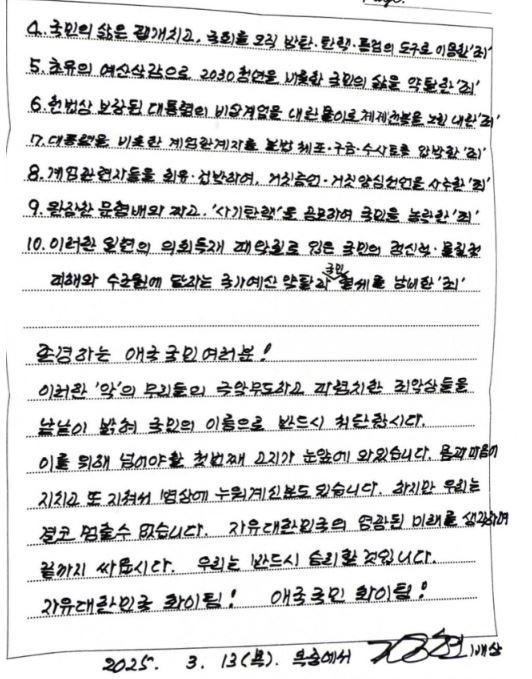 Page.
4. 국민의 삶은 팽개치고, 국회를 오직 방탄·탄핵·특검의 도구로 이용한 '죄'
5. 초유의 예산삭감으로 2030청년을 비롯한 국민의 삶을 약탈한 '죄'
6. 헌법상 보장된 대통령의 비상계엄을 내란몰이로 체제전복을 노린 내란 '죄'
7. 대통령을 비롯한 계엄관계자를 불법 체포·구금·수사토록 압박한 '죄'
8. 계엄관련자들을 회유·겁박하여, 거짓증언·거짓양심선언을 사주한 '죄'
9. 완장찬 문형배와 짜고, '사기탄핵'을 공모하여 국민을 농락한 '죄'
10. 이러한 일련의 의회독재 패악질로 입은 국민의 정신적·물질적
피해와 수조원에 달하는 국가예산 약탈과 국민혈세를 낭비한 '죄'
존경하는 애국국민여러분!
이러한 '악'의 무리들의 극악무도하고 파렴치한 죄악상들을
낱낱이 밝혀 국민의 이름으로 반드시 처단합시다.
이를 위해 넘어야할 첫번째 고지가 눈앞에 와있습니다. 몸과 마음이
지치고 또 지쳐서 병상에 누워계신분도 있습니다. 하지만 우리는
결코 멈출수 없습니다. 자유대한민국의 영광된 미래를 생각하며
끝까지 싸웁시다. 우리는 반드시 승리할 것입니다.
자유대한민국 화이팅! 애국국민 화이팅!
2025. 3. 13(목). 옥중에서 김용현 배상